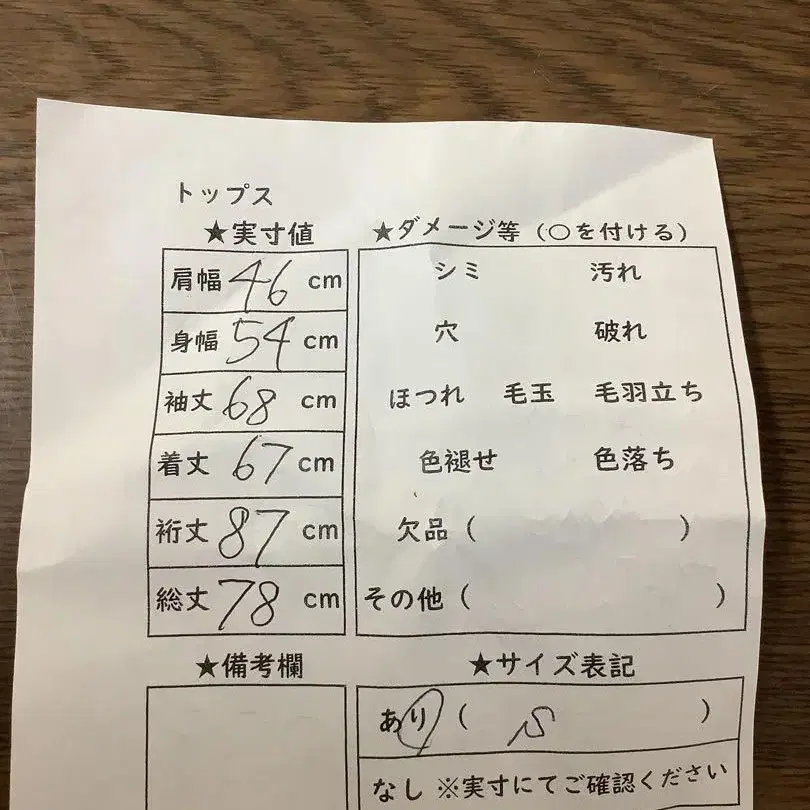 トップス
★実寸値
肩幅 46 cm
身幅 54 cm
袖丈 68 cm
着丈 67 cm
裄丈 87 cm
総丈 78 cm
★ダメージ等（○を付ける）
シミ 汚れ
穴 破れ
ほつれ 毛玉 毛羽立ち
色褪せ 色落ち
欠品（ ）
その他（ ）
★備考欄
★サイズ表記
あり（ S ）
なし ※実寸にてご確認ください